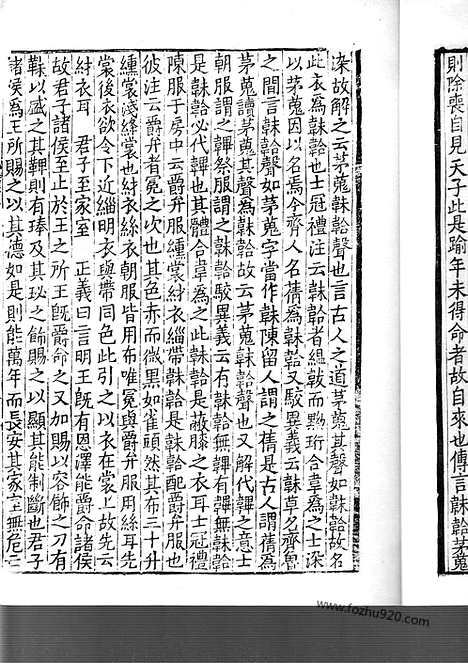 則除喪自見天子此是踰年未得命者故自來也傳言韎韐茅蒐
染故解之云茅蒐韎韐聲也言古人之道茅蒐其聲如韎韐故名
此衣爲韎韐也士冠禮注云韎韐者縕韍而黝珩合韋爲之士深
以茅蒐因以名焉今齊人名蒨爲韎韐又駮異義云韎草名齊魯
之間言韎韐聲如茅蒐字當作韎陳留人謂之蒨是古人謂蒨爲
茅蒐讀茅蒐其聲爲韎韐故云茅蒐韎韐聲也又解代韠之意士
朝服謂之韠祭服謂之韎韐駮異義云有韎韐無韠有韠無韎韐
是韎韐必代韠也其體合韋爲之此韎韐是蔽膝之衣耳士冠禮
陳服于房中云爵弁服纁裳紂衣緇帶韎韐是韎韐配爵弁服也
彼注云爵弁者冕之次也其色赤而微黑如雀頭然其布三十升
纁裳淺絳裳也紂衣絲衣朝服皆用布唯冕與爵弁服用絲耳先
裳後衣欲令下近緇明衣與帶同色此引之以衣在裳上故先云
紂衣耳　君子至家室　正義曰言明王旣有恩澤能爵命諸侯
故君子諸侯至止於王之所王旣爵命之又加賜以容飾之刀有
鞞以盛之其鞞則有琫及其珌之飾賜之以顯其能制斷也君子
諸侯爲王所賜之以其德如是則能萬年而長安其家室無危亡
www.fozhu920.com